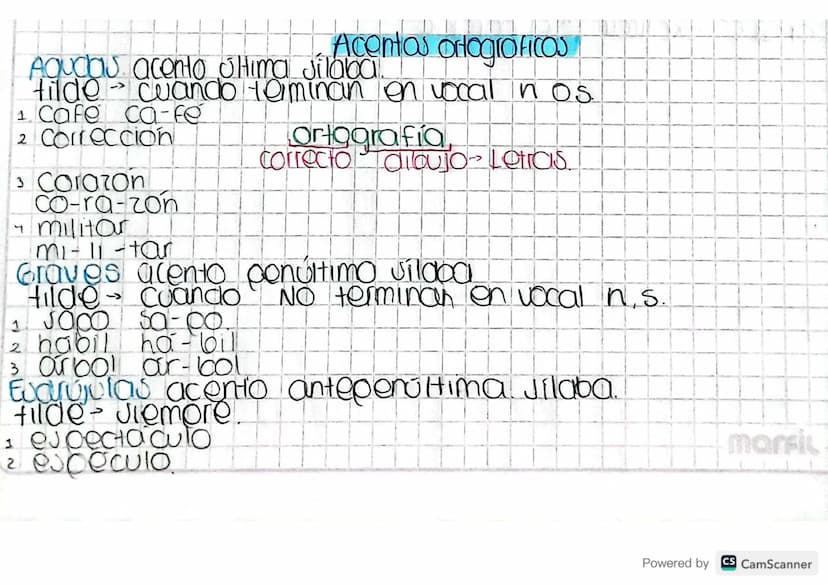 Acentos ortográficos
Agudas acento última sílaba.
tilde → cuando terminan en vocal n o s.
1 café ca-fé
2 corrección
ortografía
correcto dibujo → Letras.
3 corazón
co-ra-zón
4 militar
mi-li-tar
Graves acento penúltima sílaba
tilde → cuando NO terminan en vocal n, s.
1 sapo sa-po.
2 hábil há-bil
3 árbol ár-bol
Esdrújulas acento antepenúltima sílaba.
tilde → siempre.
1 espectáculo
2 espéculo.
marfil
Powered by CS CamScanner